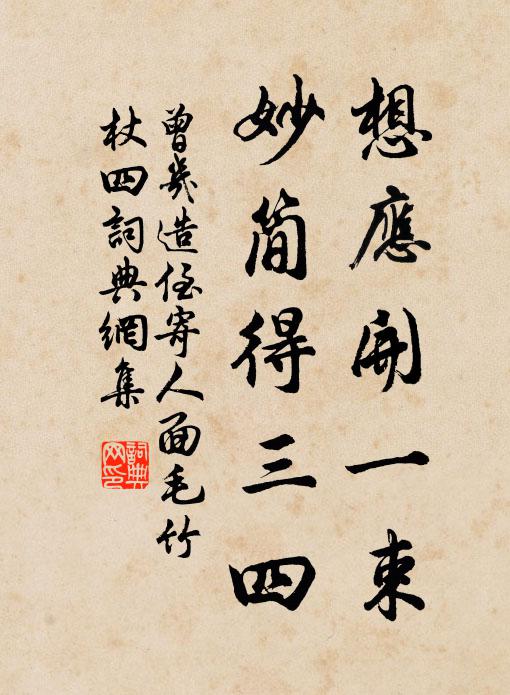 想應開一束
妙簡得三四
曾幾造侄寄人面毛竹
杖四詞典網集
詞典
网印